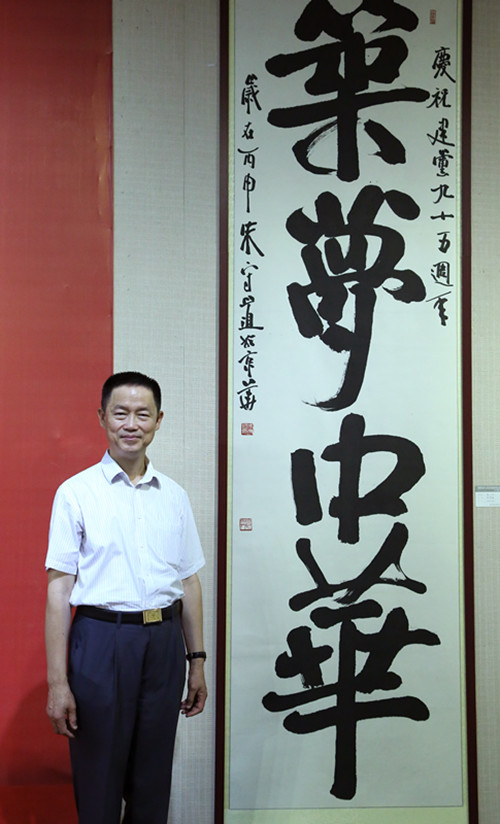 慶祝建黨九十五週年
築夢中華
歲在丙申朱守道於京華